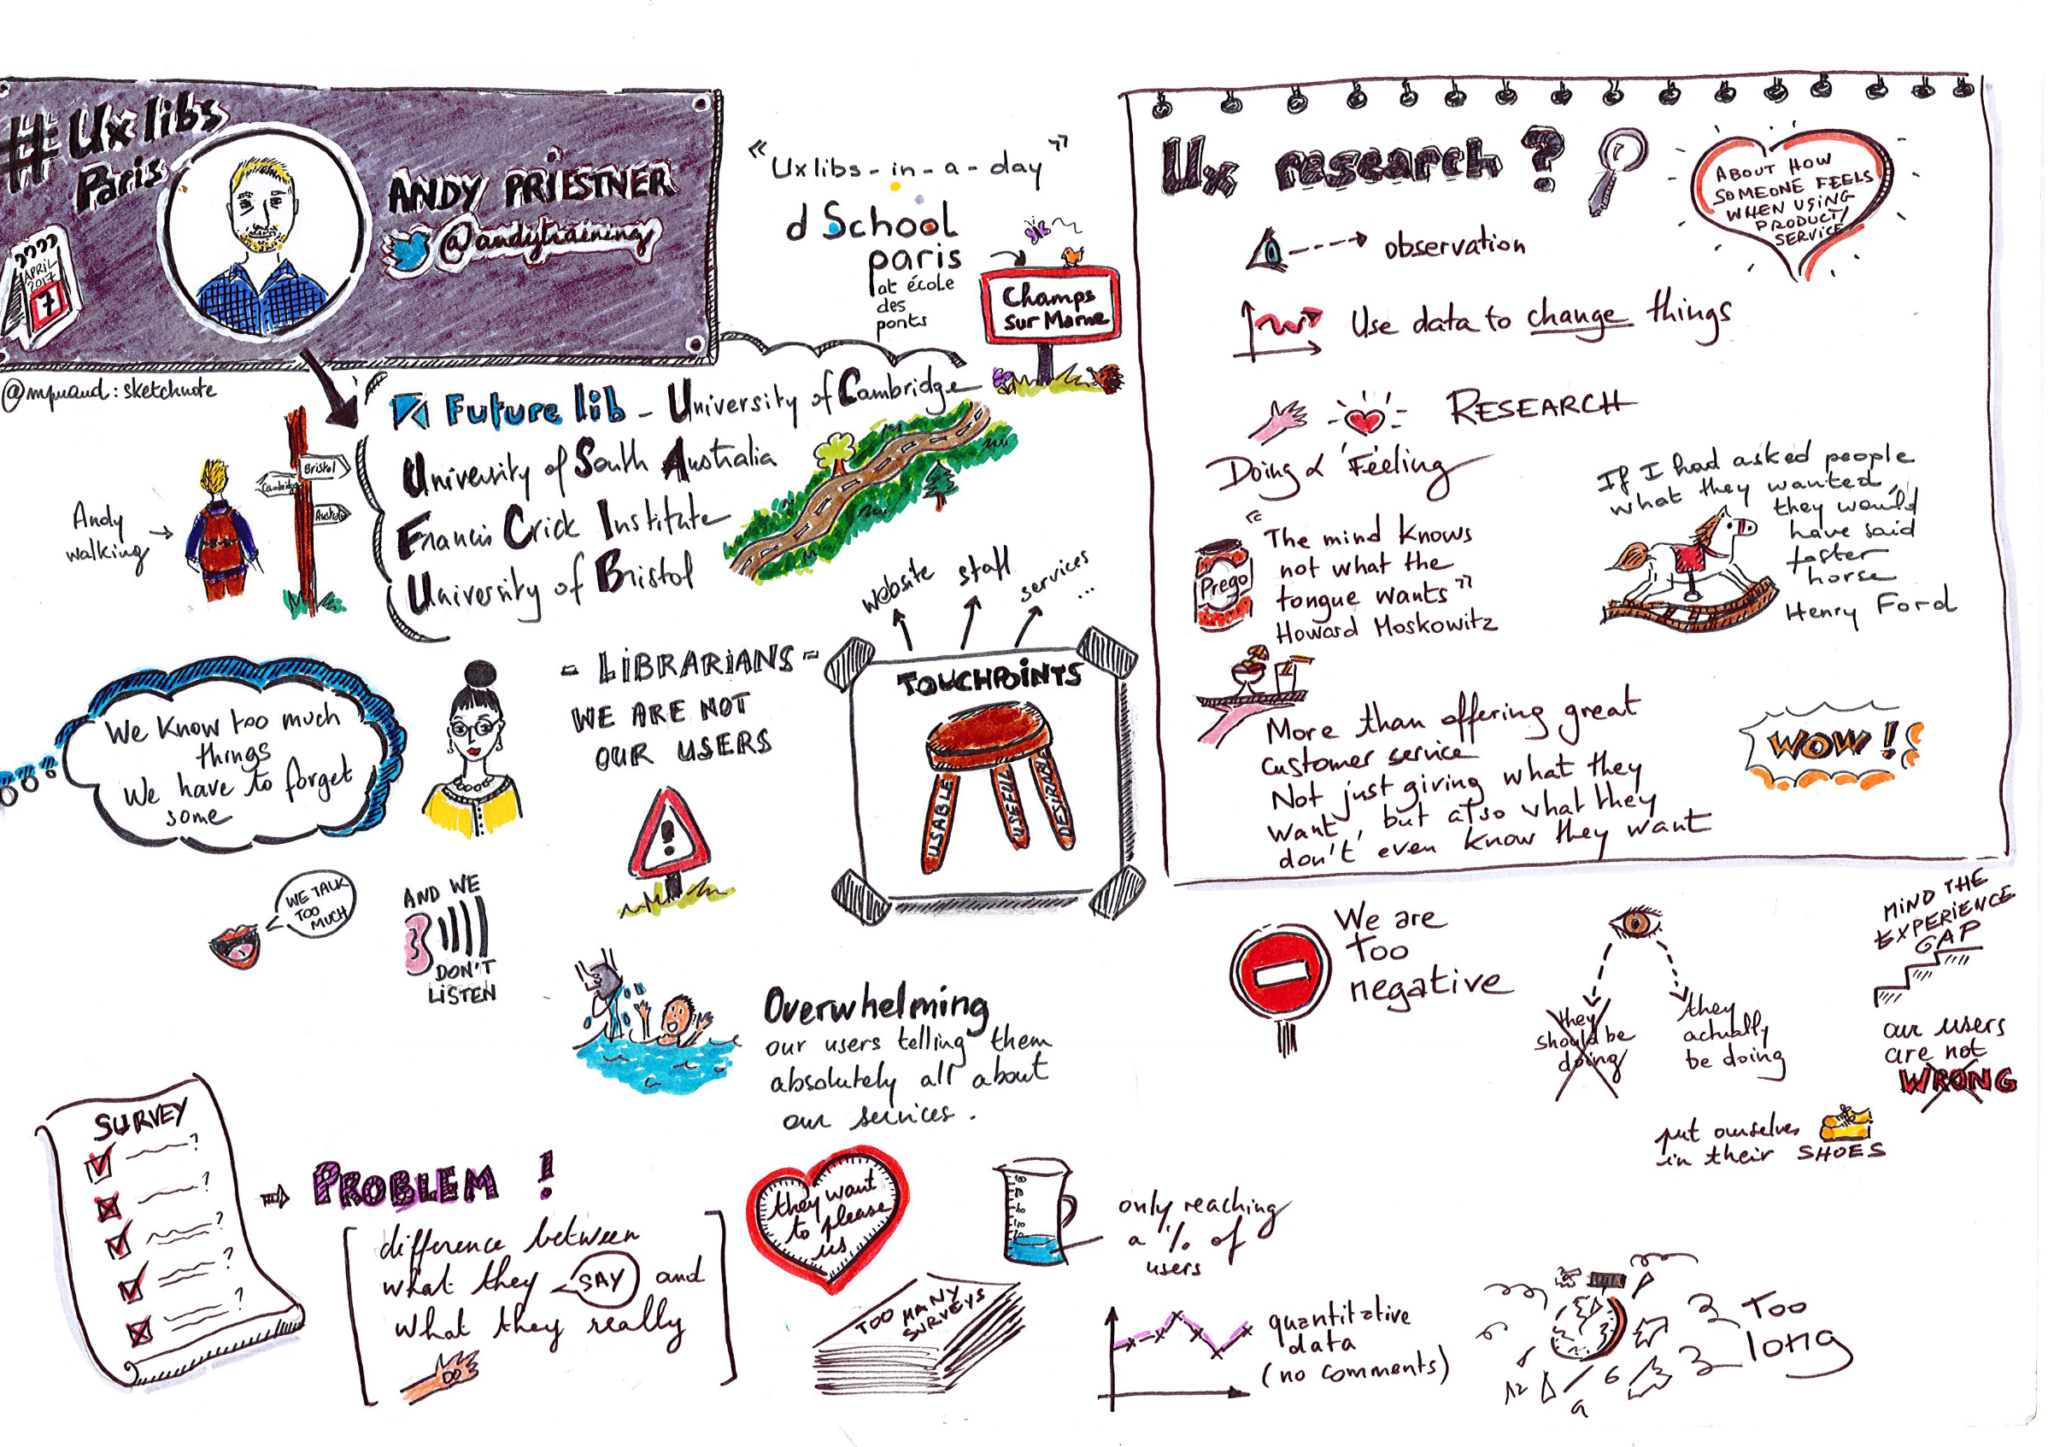 #Uxlibs
Paris
APRIL
2017
7
ANDY PRIESTNER
@andytraining
@mpuaud: sketchnote
"Uxlibs-in-a-day"
d School
paris
at école
des
ponts
Champs
sur Marne
Future lib - University of Cambridge
University of South Australia
Francis Crick Institute
University of Bristol
Andy
walking
Bristol
Cambridge
We know too much
things
We have to forget
some
- LIBRARIANS -
WE ARE NOT
OUR USERS
WE TALK
TOO
MUCH
AND WE
DON'T
LISTEN
website
staff
services
...
TOUCHPOINTS
USABLE
USEFUL
DESIRABLE
Overwhelming
our users telling them
absolutely all about
our services.
Ux research ?
ABOUT HOW
SOMEONE FEELS
WHEN USING
PRODUCT/
SERVICE
observation
Use data to change things
RESEARCH
Doing & Feeling
"The mind knows
not what the
tongue wants"
Howard Moskowitz
Prego
If I had asked people
what they wanted,
they would
have said
faster
horse
Henry Ford
More than offering great
customer service
Not just giving what they
want, but also what they
don't even know they want
WOW !
We are
too
negative
they
should be
doing
they
actually
be doing
MIND THE
EXPERIENCE
GAP
our users
are not
WRONG
put ourselves
in their SHOES
SURVEY
?
?
?
?
?
PROBLEM !
difference between
what they SAY and
what they really
DO
they want
to please
us
TOO MANY
SURVEYS
only reaching
a % of
users
quantitative
data
(no comments)
12
6
9
Too
long